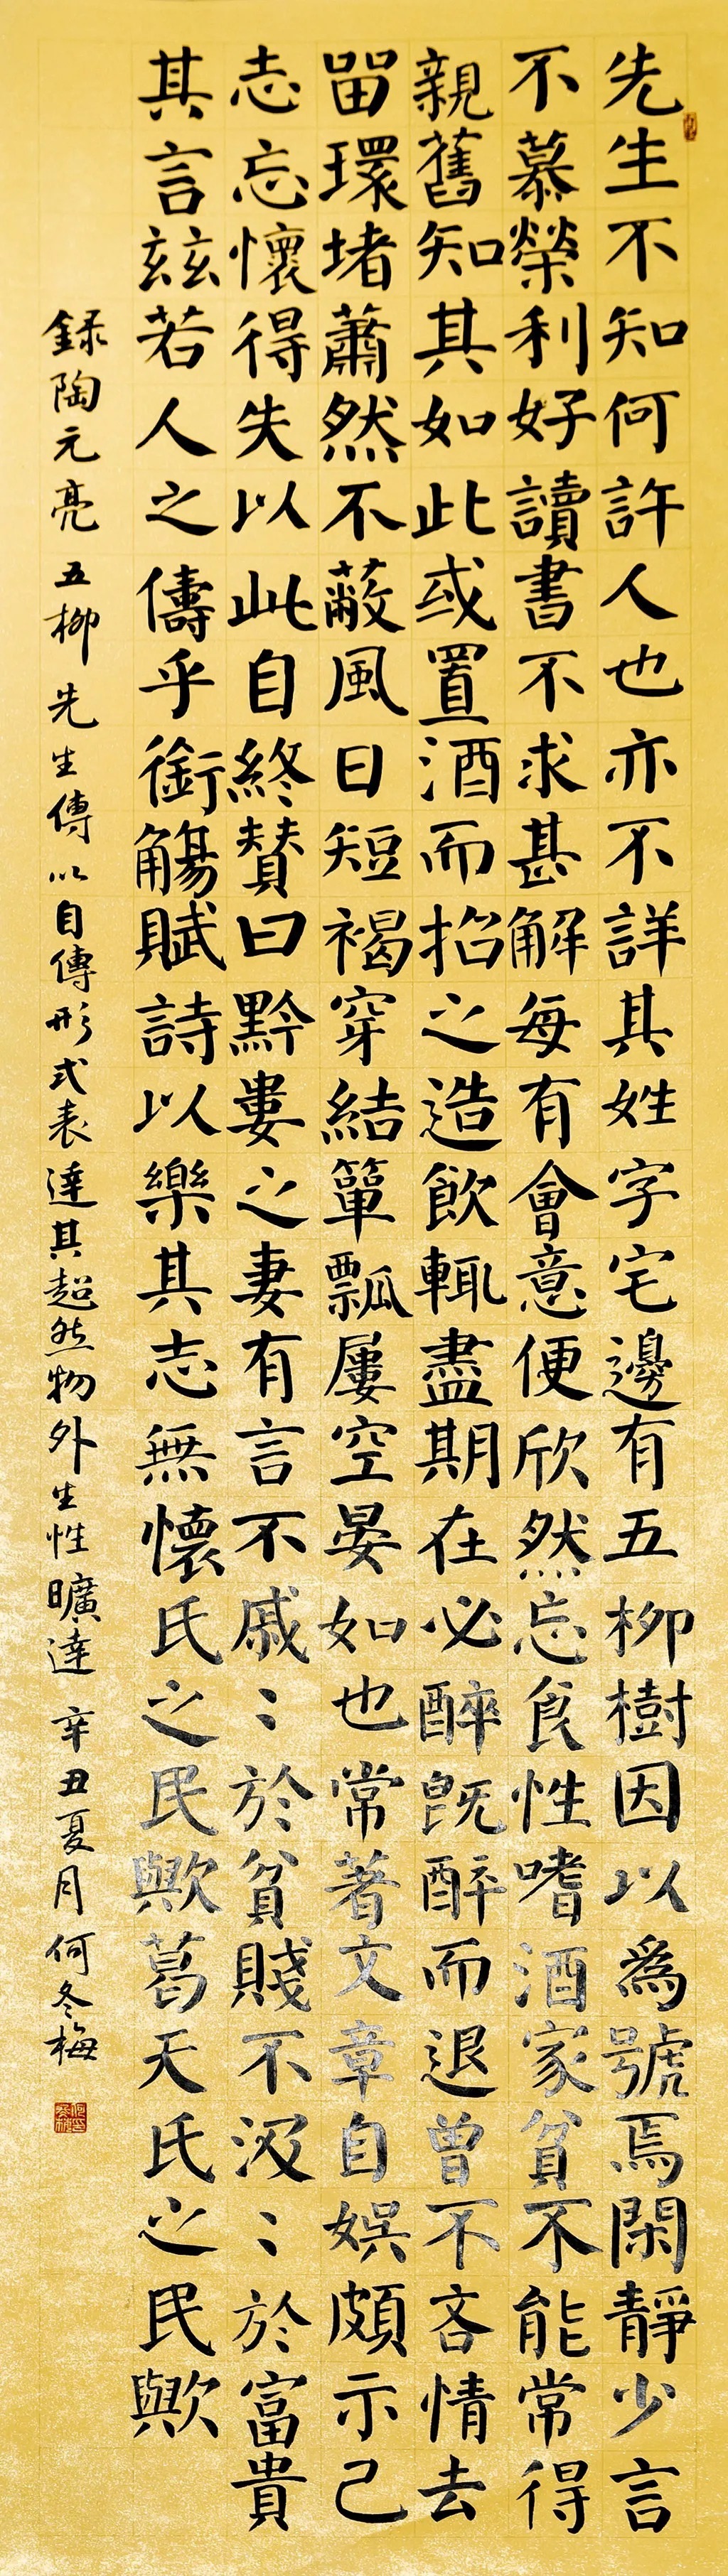 先生不知何許人也亦不詳其姓字宅邊有五柳樹因以為號焉閑靜少言
不慕榮利好讀書不求甚解每有會意便欣然忘食性嗜酒家貧不能常得
親舊知其如此或置酒而招之造飲輒盡期在必醉既醉而退曾不吝情去
留環堵蕭然不蔽風日短褐穿結簞瓢屢空晏如也常著文章自娛頗示己
志忘懷得失以此自終贊曰黔婁之妻有言不戚〻於貧賤不汲〻於富貴
其言玆若人之儔乎銜觴賦詩以樂其志無懷氏之民歟葛天氏之民歟
錄陶元亮五柳先生傳以自傳形式表達其超然物外生性曠達辛丑夏月何冬梅